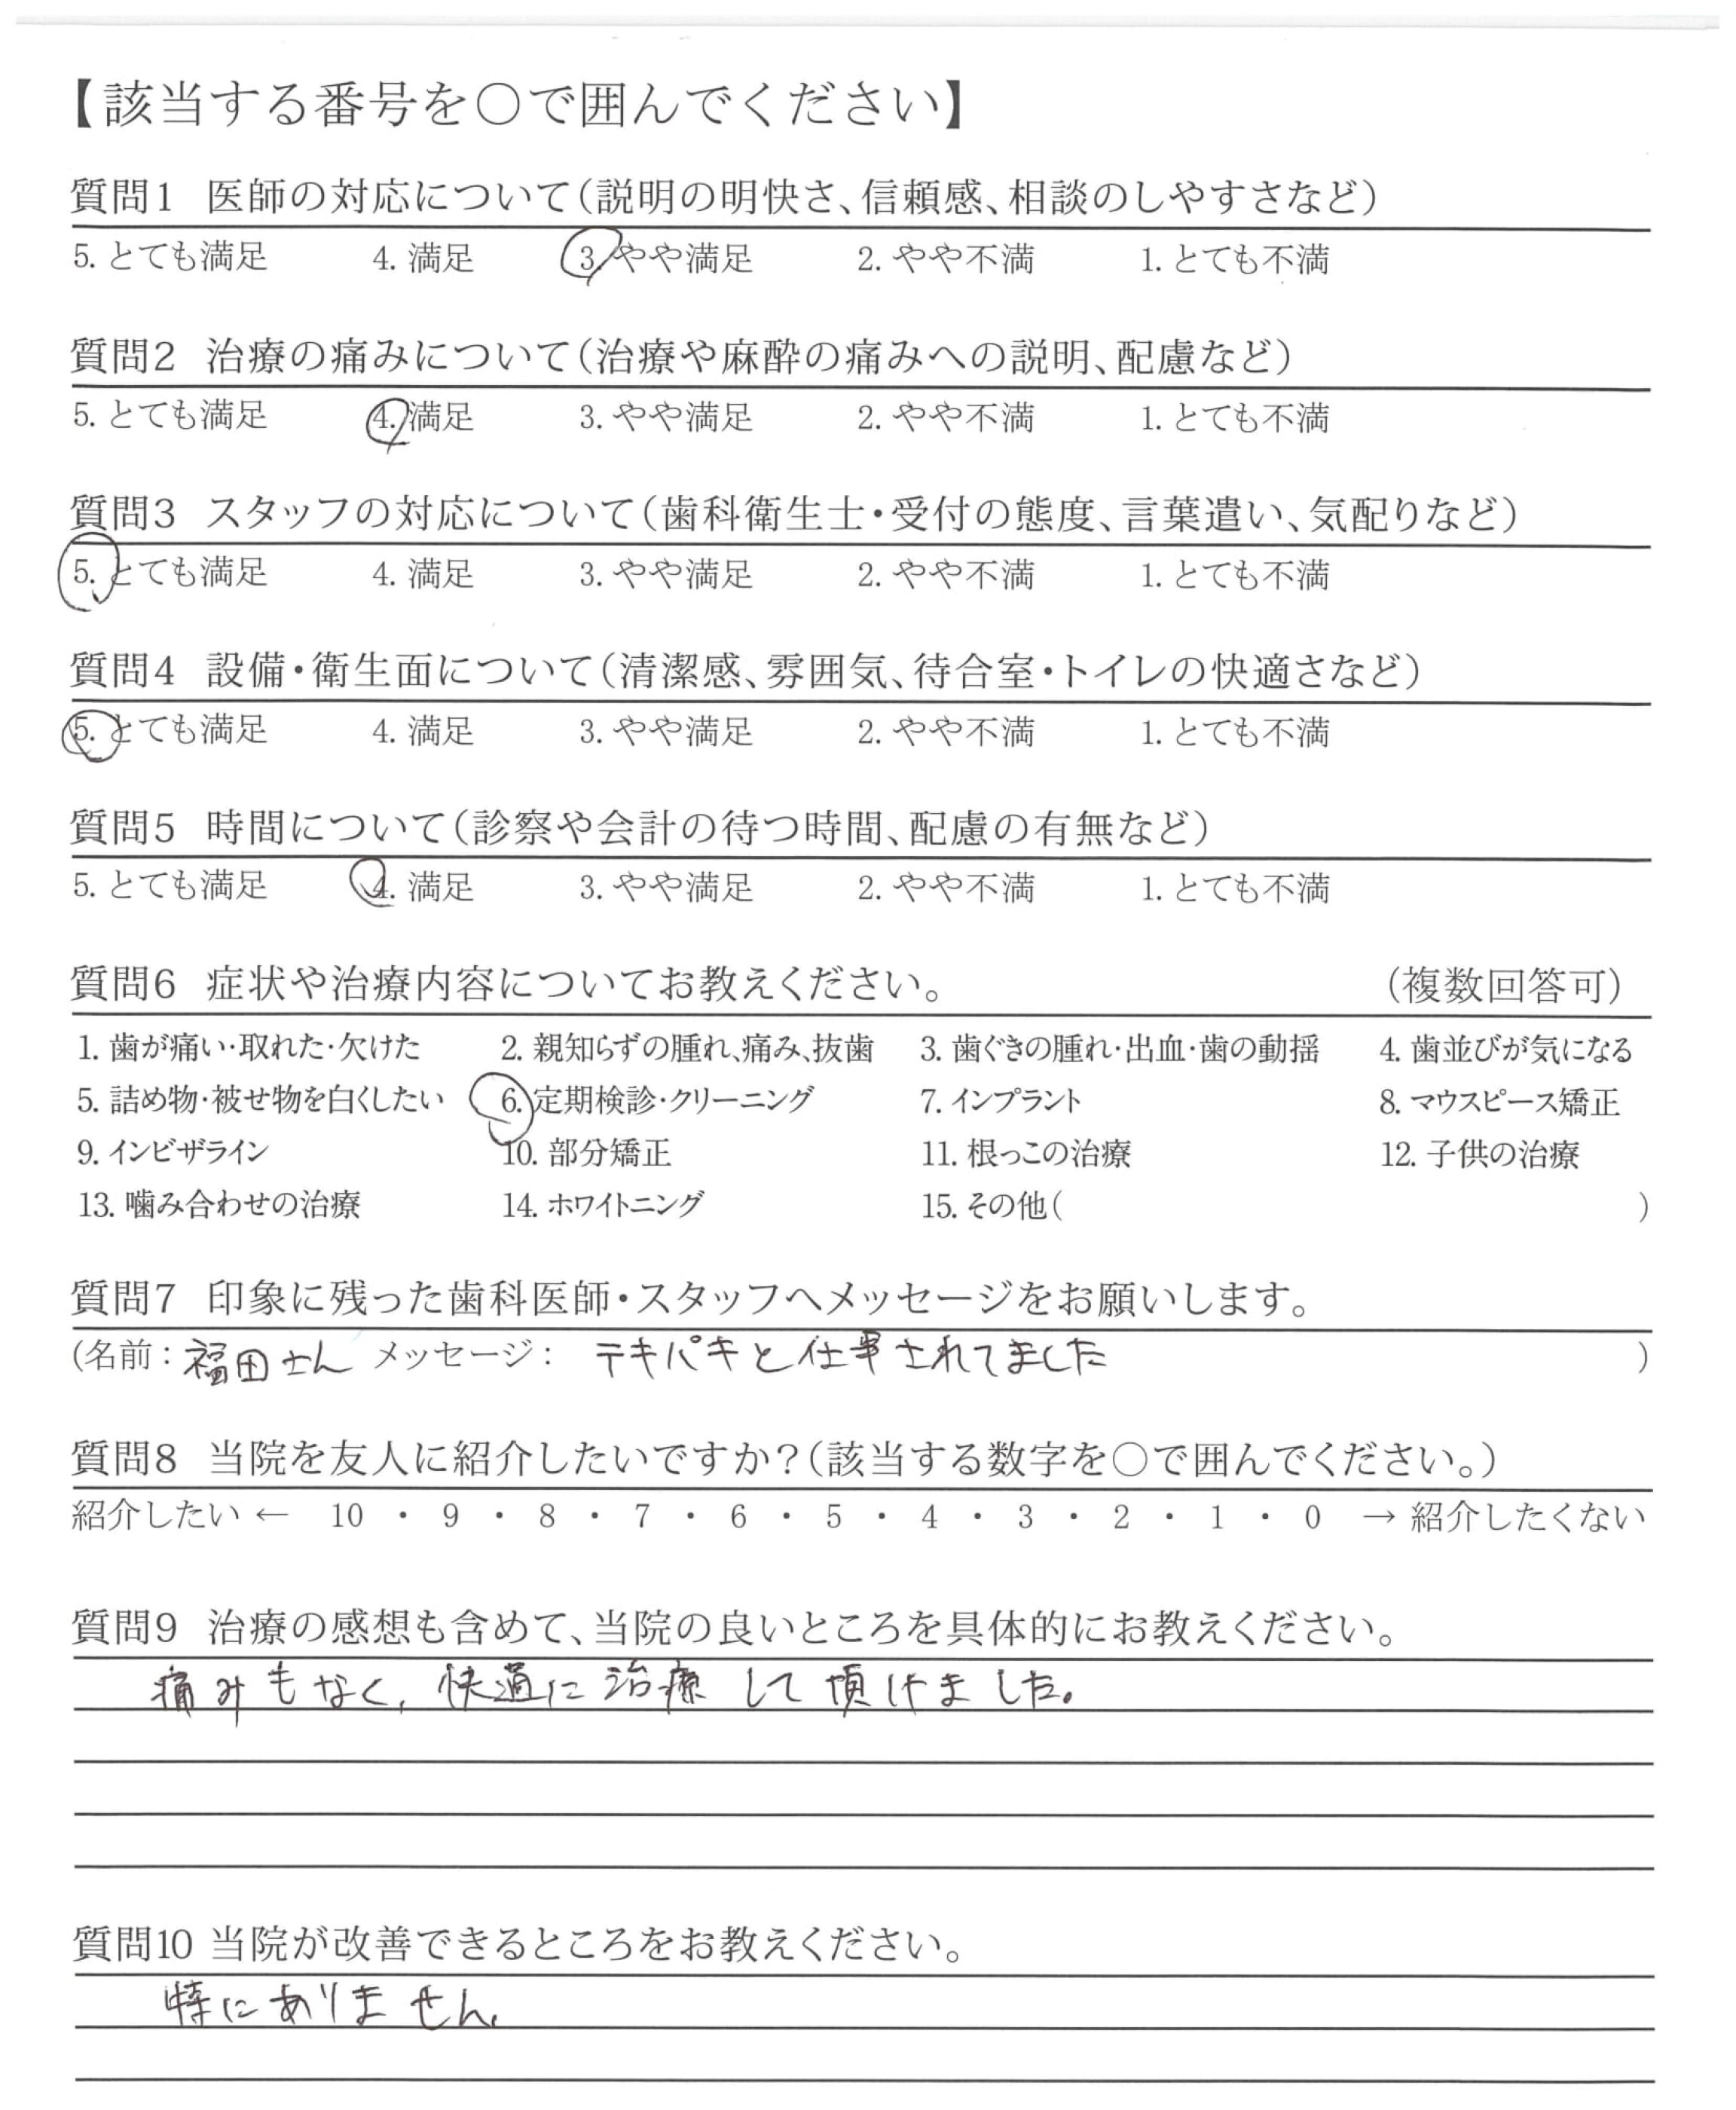 【該当する番号を○で囲んでください】
質問1 医師の対応について(説明の明快さ、信頼感、相談のしやすさなど)
5. とても満足 4. 満足 3. やや満足 2. やや不満 1. とても不満
質問2 治療の痛みについて(治療や麻酔の痛みへの説明、配慮など)
5. とても満足 4. 満足 3. やや満足 2. やや不満 1. とても不満
質問3 スタッフの対応について(歯科衛生士・受付の態度、言葉遣い、気配りなど)
5. とても満足 4. 満足 3. やや満足 2. やや不満 1. とても不満
質問4 設備・衛生面について(清潔感、雰囲気、待合室・トイレの快適さなど)
5. とても満足 4. 満足 3. やや満足 2. やや不満 1. とても不満
質問5 時間について(診察や会計の待つ時間、配慮の有無など)
5. とても満足 4. 満足 3. やや満足 2. やや不満 1. とても不満
質問6 症状や治療内容についてお教えください。 (複数回答可)
1. 歯が痛い・取れた・欠けた 2. 親知らずの腫れ、痛み、抜歯 3. 歯ぐきの腫れ・出血・歯の動揺 4. 歯並びが気になる
5. 詰め物・被せ物を白くしたい 6. 定期検診・クリーニング 7. インプラント 8. マウスピース矯正
9. インビザライン 10. 部分矯正 11. 根っこの治療 12. 子供の治療
13. 噛み合わせの治療 14. ホワイトニング 15. その他( )
質問7 印象に残った歯科医師・スタッフへメッセージをお願いします。
(名前：福田さん メッセージ： テキパキと仕事されてました )
質問8 当院を友人に紹介したいですか？(該当する数字を○で囲んでください。)
紹介したい ← 10 ・ 9 ・ 8 ・ 7 ・ 6 ・ 5 ・ 4 ・ 3 ・ 2 ・ 1 ・ 0 → 紹介したくない
質問9 治療の感想も含めて、当院の良いところを具体的にお教えください。
痛みもなく、快適に治療して頂けました。
質問10 当院が改善できるところをお教えください。
特にありません。